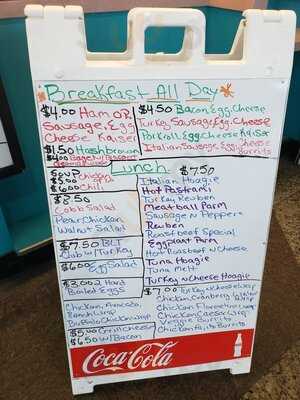 Breakfast All Day
$4.00 Ham or
Sausage, Egg
Cheese Kaiser
$1.50 Hashbrown
$4.00
$4.50 Bacon, Egg, Cheese
Turkey Sausage, Egg, Cheese
Pork Roll, Egg, Cheese Kaiser
Italian Sausage, Egg, Cheese
Burrito
Lunch
Soup
$6.00 Chili
$8.50
Cobb Salad
Pear Chicken
Walnut Salad
$7.50 BLT
Club w/ Turkey
$6.00 Egg Salad
$3.00 2 Hard
Boiled Eggs
Chicken, Avocado,
Ranch Wrap
Buffalo Chicken Wrap
$5.00 Grill Cheese
$6.50 w/ Bacon
$7.50
Italian Hoagie
Hot Pastrami
Turkey Reuben
Meatball Parm
Sausage N Peppers
Reuben
Roast Beef Special
Eggplant Parm
Hot Roast Beef N Cheese
Tuna Hoagie
Tuna Melt
Turkey N Cheese Hoagie
$7.00 Turkey N Cheese Wrap
Chicken Cranberry Wrap
Chicken Florentine Wrap
Chicken Caesar Wrap
Veggie Burrito
Chicken Fajita Burrito
Coca-Cola